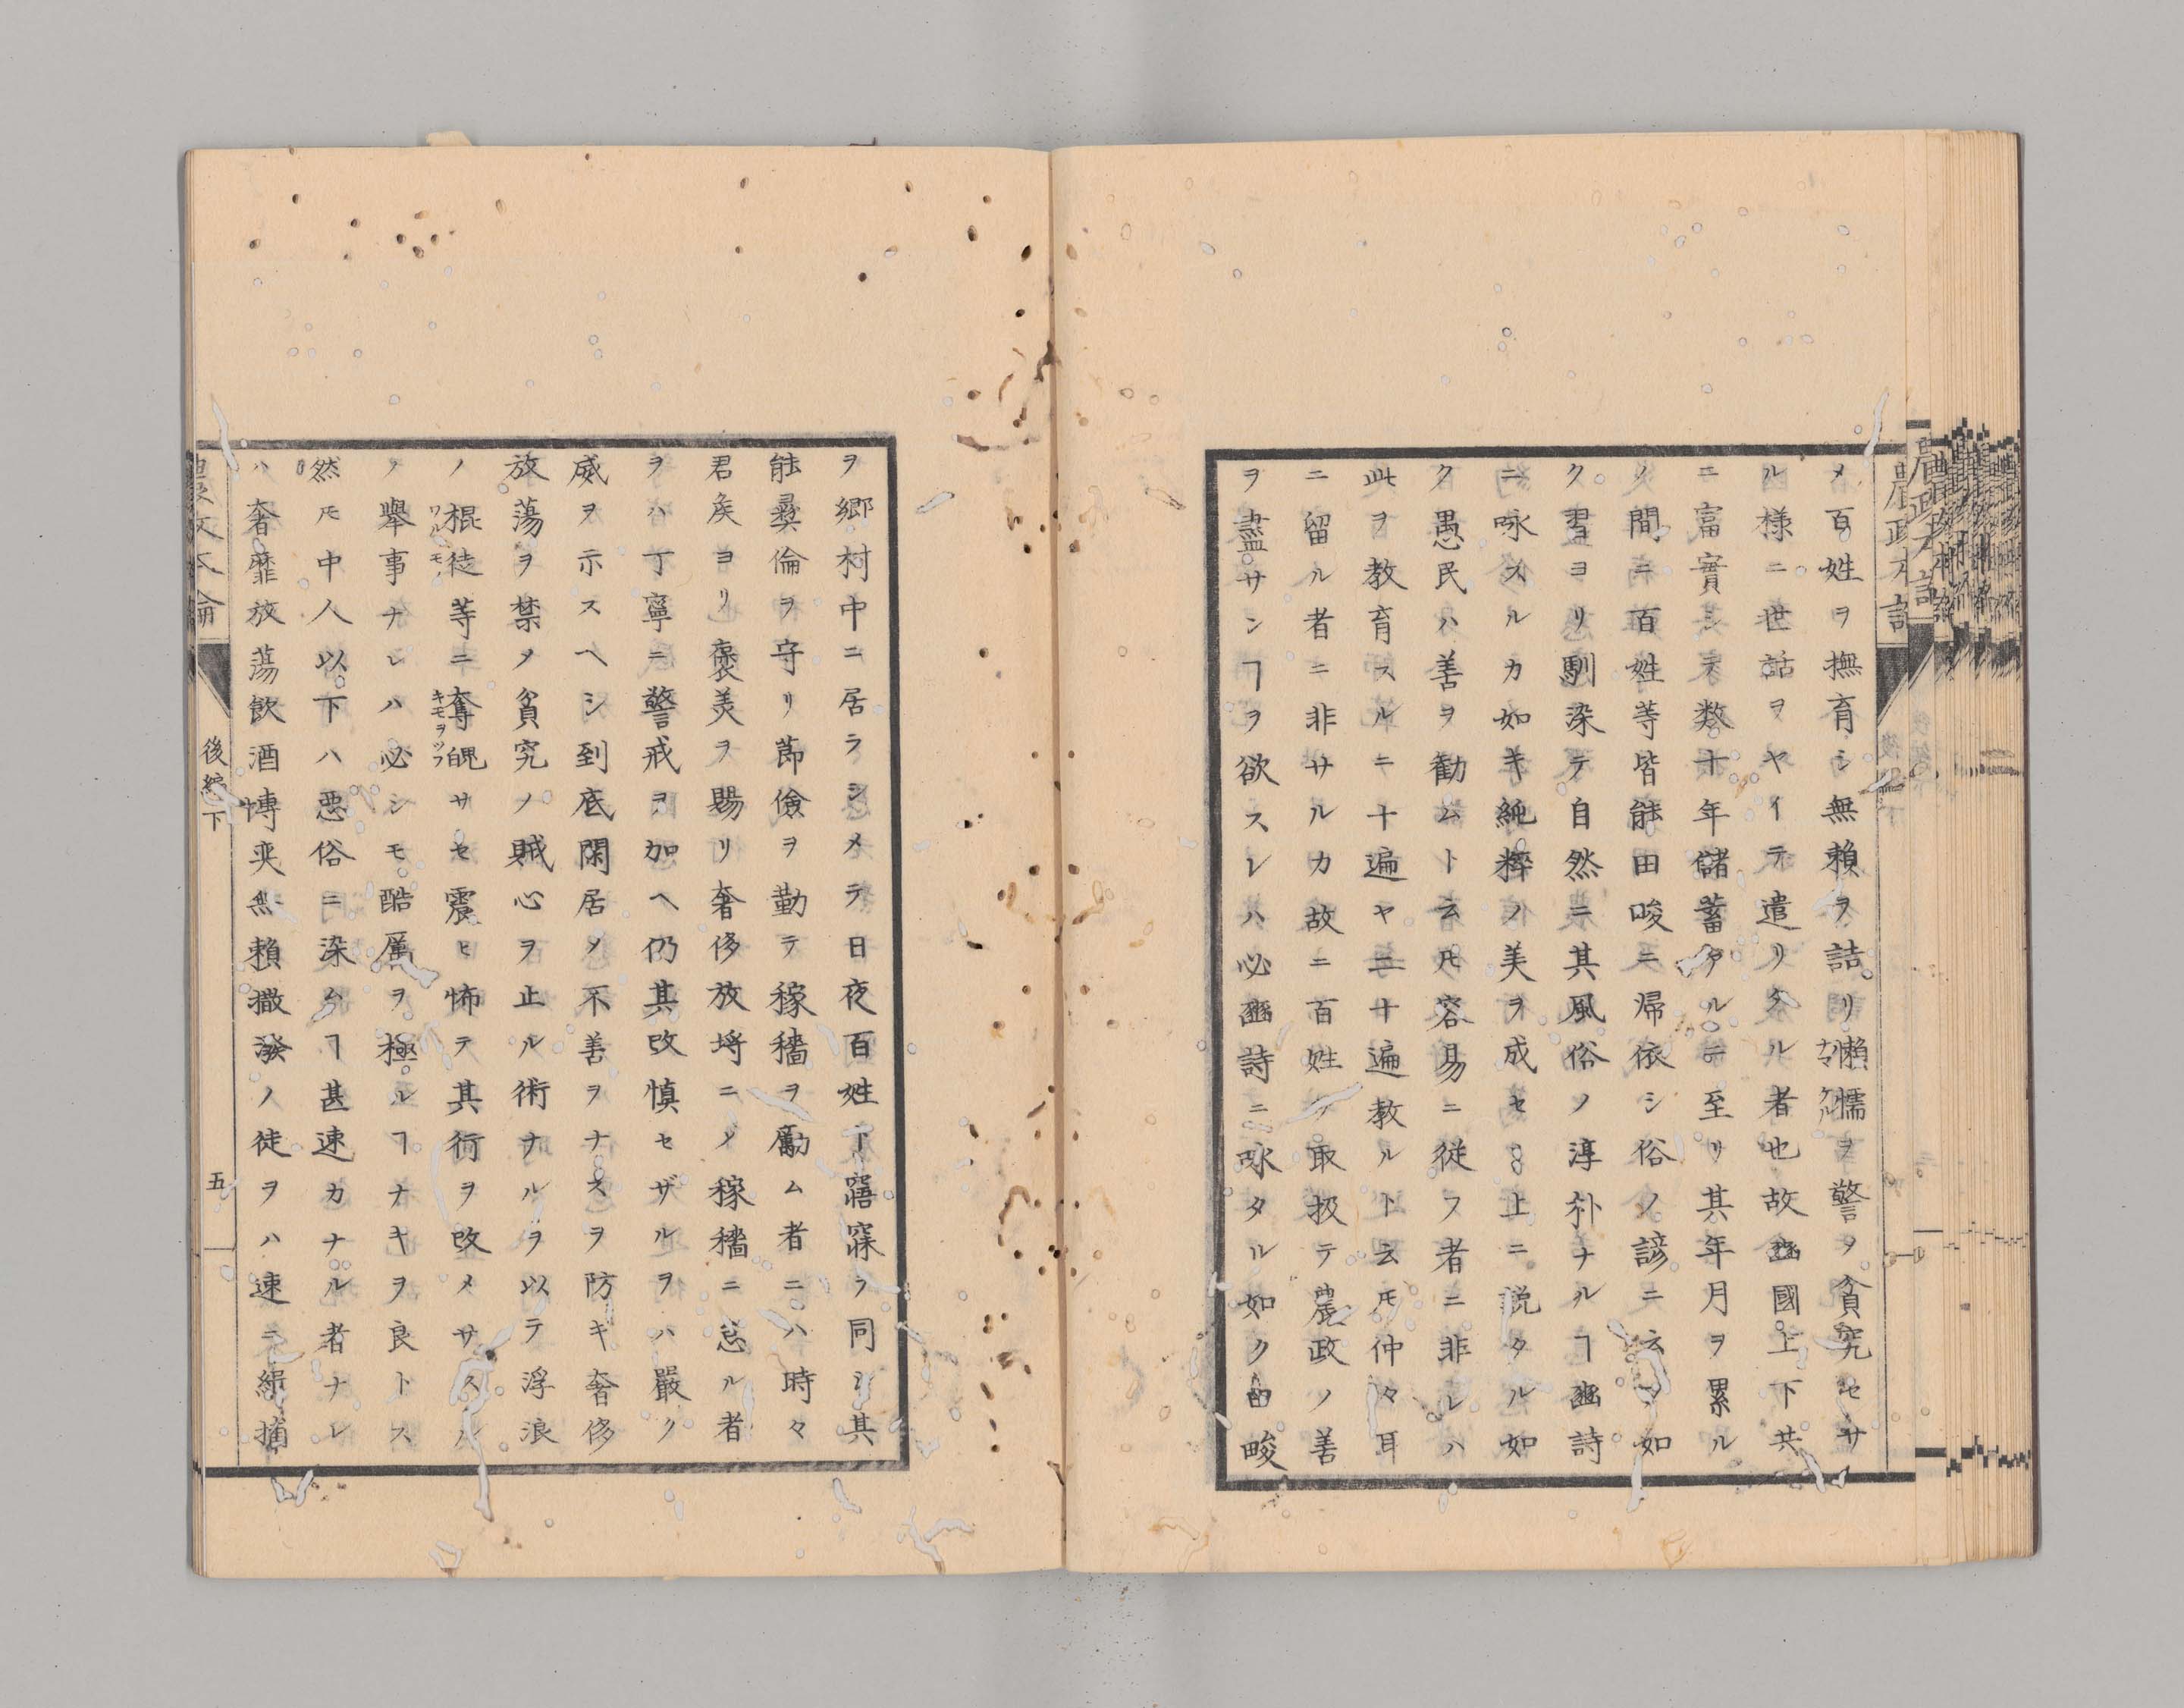 メ百姓ヲ撫育シ無賴ヲ詰リ懶惰ヲ警メ貧究セサ
ル樣ニ世話ヲヤイテ遣リタル者也故豳國上下共
ニ富實シテ数十年儲蓄タルニ至リ其年月ヲ累ル
ノ間ニ百姓等皆能田畯ニ帰依シ俗ノ諺ニ云フ如
ク習ヨリ馴染テ自然ニ其風俗ノ淳朴ナルヿ豳詩
ニ咏スルカ如キ純粹ノ美ヲ成セリ上ニ説タル如
ク愚民ハ善ヲ勸ムト云圧容易ニ従フ者ニ非レハ
此ヲ教育スルニ十遍ヤ二十遍教ルト云圧仲々耳
ニ留ル者ニ非サルカ故ニ百姓ヲ取扱テ農政ノ善
ヲ盡サンヿヲ欲スレハ必豳詩ニ咏タル如ク田畯
ヲ郷村中ニ居ラシメテ日夜百姓ト寤寐ヲ同シ其
能彜倫ヲ守リ莭儉ヲ勤テ稼穡ヲ勵ム者ニハ時々
君矦ヨリ褒美ヲ賜リ奢侈放埒ニノ稼穡ニ怠ル者
ヲハ丁寧ニ警戒ヲ加ヘ仍其改慎セザルヲハ嚴ク
威ヲ示スヘシ到底閑居ノ不善ヲナスヲ防キ奢侈
放蕩ヲ禁メ貧究ノ賊心ヲ止ル術ナルヲ以テ浮浪
ノ棍徒等ニ奪魄サセ震ヒ怖テ其行ヲ改メサスル
ワルモノ
キモヲツフ
ノ舉事ナレハ必シモ酷厲ヲ極ルヿナキヲ良トス
然圧中人以下ハ悪俗ニ染ムヿ甚速カナル者ナレ
ハ奢靡放蕩飲酒博奕無賴撒潑ノ徒ヲハ速ニ緝捕
後編下
五